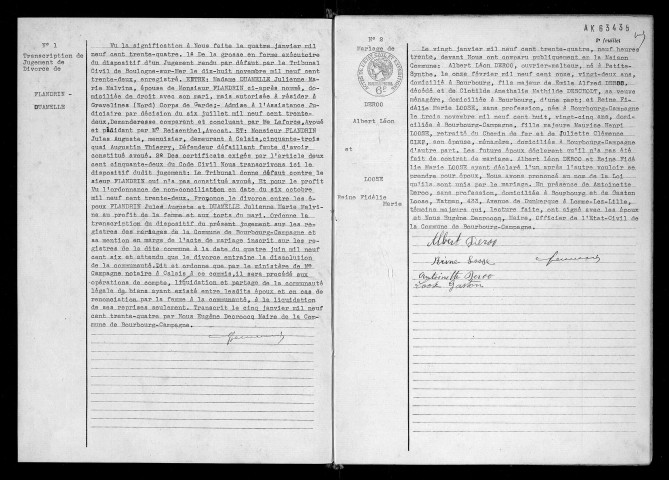 N° 1
Transcription de
Jugement de
Divorce de
FLANDRIN -
DUAMELLE
Vu la signification à Nous faite le quatre janvier mil
neuf cent trente-quatre. 1° De la grosse en forme exécutoire
du dispositif d'un Jugement rendu par défaut par le Tribunal
Civil de Boulogne-sur-Mer le dix-huit novembre mil neuf cent
trente-deux, enregistré. ENTRE: Madame DUAMELLE Julienne Ma-
rie Malvina, épouse de Monsieur FLANDRIN ci-après nommé, do-
miciliée de droit avec son mari, mais autorisée à résider à
Gravelines (Nord) Corps de Garde;- Admise à l'Assistance Ju-
diciaire par décision du six juillet mil neuf cent trente-
deux, Demanderesse comparant et concluant par Me Laforce, Avoué
et plaidant par Me Reisenthel, Avocat. ET: Monsieur FLANDRIN
Jules Auguste, menuisier, demeurant à Calais, cinquante-trois
quai Augustin Thierry, Défendeur défaillant faute d'avoir
constitué avoué. 2° Des certificats exigés par l'article deux
cent cinquante-deux du Code Civil Nous transcrivons ici le
dispositif dudit jugement: Le Tribunal donne défaut contre le
sieur FLANDRIN qui n'a pas constitué avoué, Et pour le profit
Vu l'ordonnance de non-conciliation en date du six octobre
mil neuf cent trente-deux. Prononce le divorce entre les é-
poux FLANDRIN Jules Auguste et DUAMELLE Julienne Marie Malvi-
na au profit de la femme et aux torts du mari. Ordonne la
transcription du dispositif du présent jugement sur les re-
gistres des mariages de la Commune de Bourbourg-Campagne et
sa mention en marge de l'acte de mariage inscrit sur les re-
gistres de la dite commune à la date du quatre juin mil neuf
cent six et attendu que le divorce entraine la dissolution
de la communauté. Dit et ordonne que par le ministère de Me
Campagne notaire à Calais à ce commis, il sera procédé aux
opérations de compte, liquidation et partage de la communauté
légale de biens ayant existé entre lesdits époux et en cas de
renonciation par la femme à la communauté, à la liquidation
de ses reprises seulement. Transcrit le cinq janvier mil neuf
cent trente-quatre par Nous Eugène Decroocq Maire de la Com-
mune de Bourbourg-Campagne.
N° 2
Mariage de
DEROO
Albert Léon
et
LOOSE
Reine Fidélie
Marie
AK 63435
Le vingt janvier mil neuf cent trente-quatre, neuf heures
trente, devant Nous ont comparu publiquement en la Maison
Commune : Albert Léon DEROO, ouvrier-maileur, né à Petite-
Synthe, le onze février mil neuf cent onze, vingt-deux ans,
domicilié à Bourbourg, fils majeur de Emile Alfred DEROO,
décédé et de Clothilde Anathalie Mathilde DERCHOUT, sa veuve
ménagère, domiciliée à Bourbourg, d'une part; et Reine Fi-
délie Marie LOOSE, sans profession, née à Bourbourg-Campagne
le trois novembre mil neuf cent huit, vingt-cinq ans, domi-
ciliée à Bourbourg-Campagne, fille majeure Maurice Henri
LOOSE, retraité du Chemin de fer et de Juliette Clémence
CLEP, son épouse, ménagère, domiciliés à Bourbourg-Campagne
d'autre part. Les futurs époux déclarent qu'il n'a pas été
fait de contrat de mariage. Albert Léon DEROO et Reine Fidé
lie Marie LOOSE ayant déclaré l'un après l'autre vouloir se
prendre pour époux, Nous avons prononcé au nom de la Loi
qu'ils sont unis par le mariage. En présence de Antoinette
Deroo, sans profession, domiciliée à Bourbourg et de Gaston
Loose, 433, Avenue de Dunkerque à Lomme-lez-Lille,
témoins majeurs qui, lecture faite, ont signé avec les époux
et Nous Eugène Decroocq, Maire, Officier de l'Etat-Civil de
la Commune de Bourbourg-Campagne.
Albert Deroo
Reine Loose
Antoinette Deroo
Loose Gaston